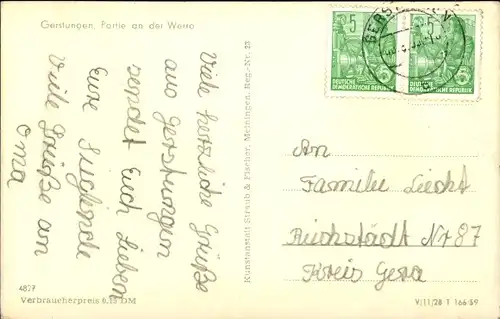 Gerstungen, Partie an der Werra
Viele herzliche Grüße
aus Gerstungen
sendet Euch Lieben
Eure
Viele Grüße an
Oma
Kunstanstalt Straub & Fischer, Meiningen, Reg.-Nr. 23
5
DEUTSCHE
DEMOKRATISCHE REPUBLIK
5
DEUTSCHE
DEMOKRATISCHE REPUBLIK
An
Familie Liecht
Reichstädt Nr 87
Kreis Gera
4827
Verbraucherpreis 0,15 DM
V/11/28 T 166/59